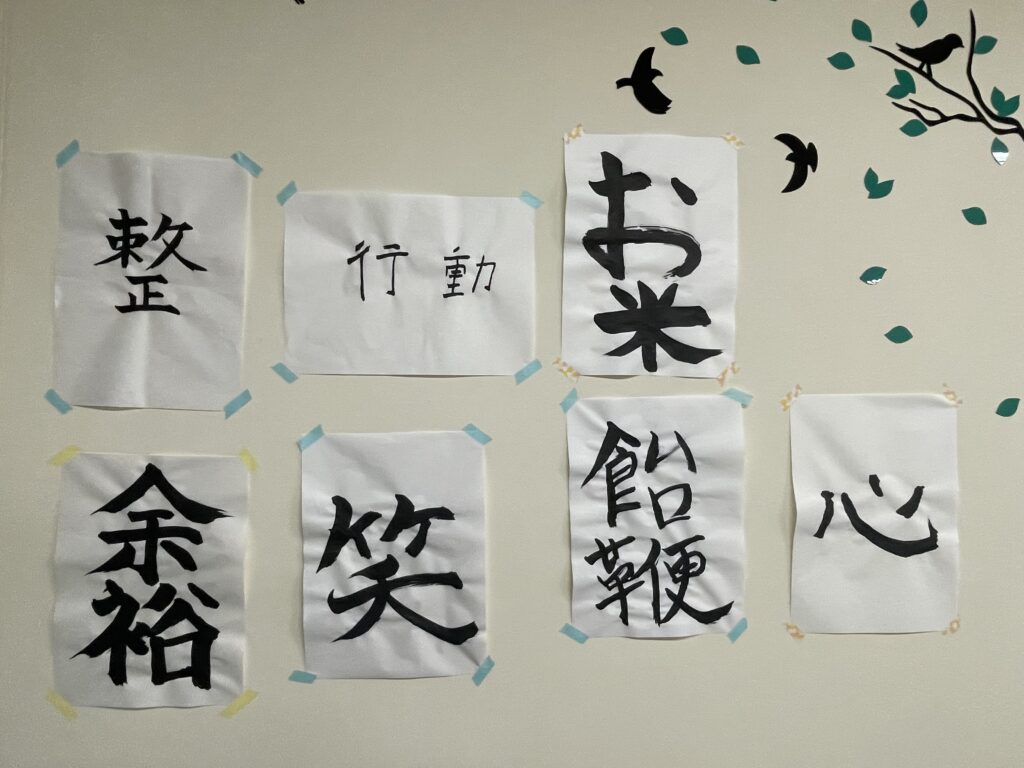 整
行動
お米
余裕
笑
飴鞭
心